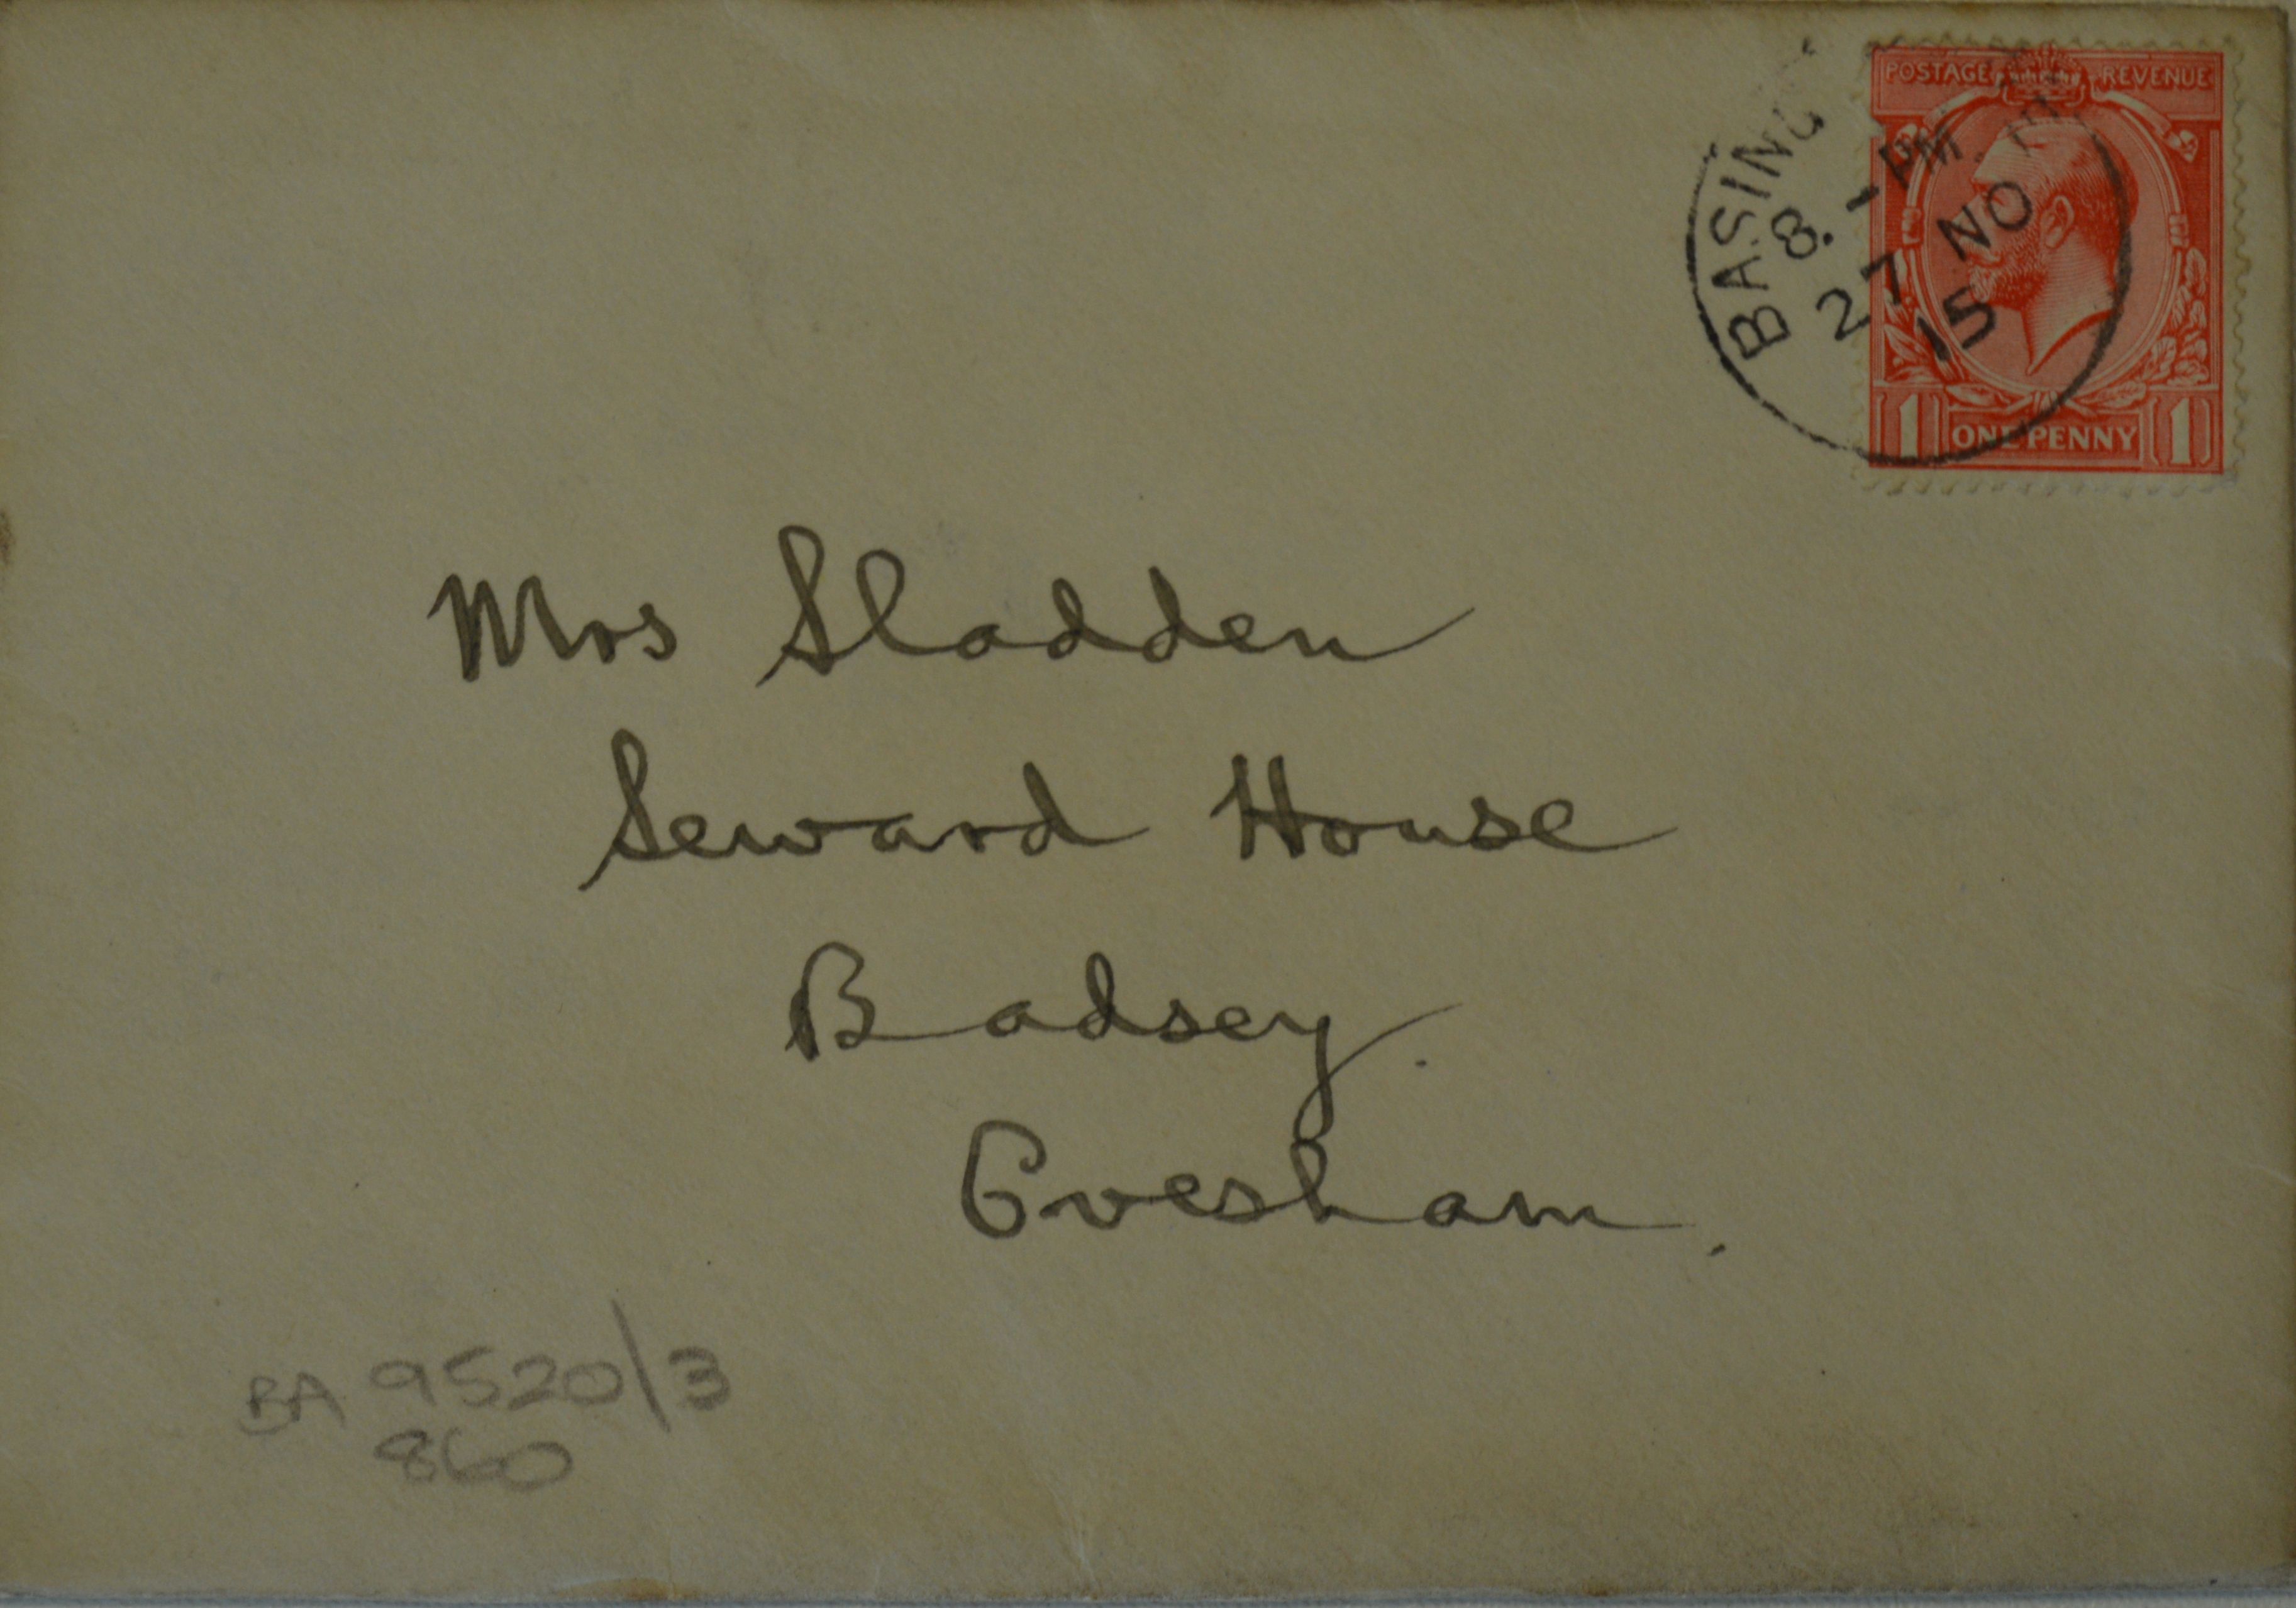 POSTAGE REVENUE
BASING
8. - PM
27 NO
15
1 ONE PENNY 1
Mrs Sladden
Seward House
Badsey.
Evesham.
BA 9520/3
860